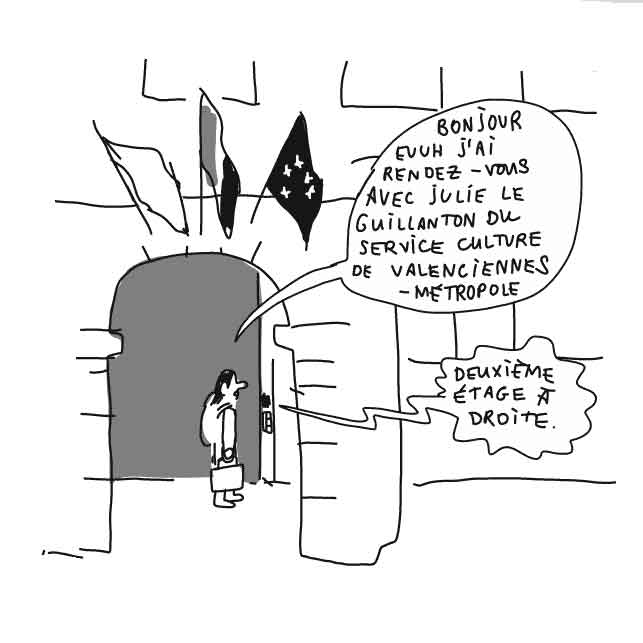 BONJOUR
EUUH J'AI
RENDEZ-VOUS
AVEC JULIE LE
GUILLANTON DU
SERVICE CULTURE
DE VALENCIENNES
-MÉTROPOLE
DEUXIÈME
ÉTAGE À
DROITE.